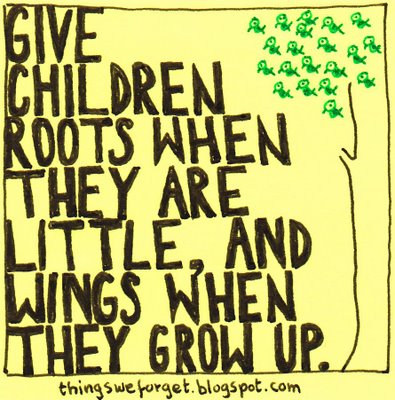 GIVE
CHILDREN
ROOTS WHEN
THEY ARE
LITTLE, AND
WINGS WHEN
THEY GROW UP.
thingsweforget.blogspot.com